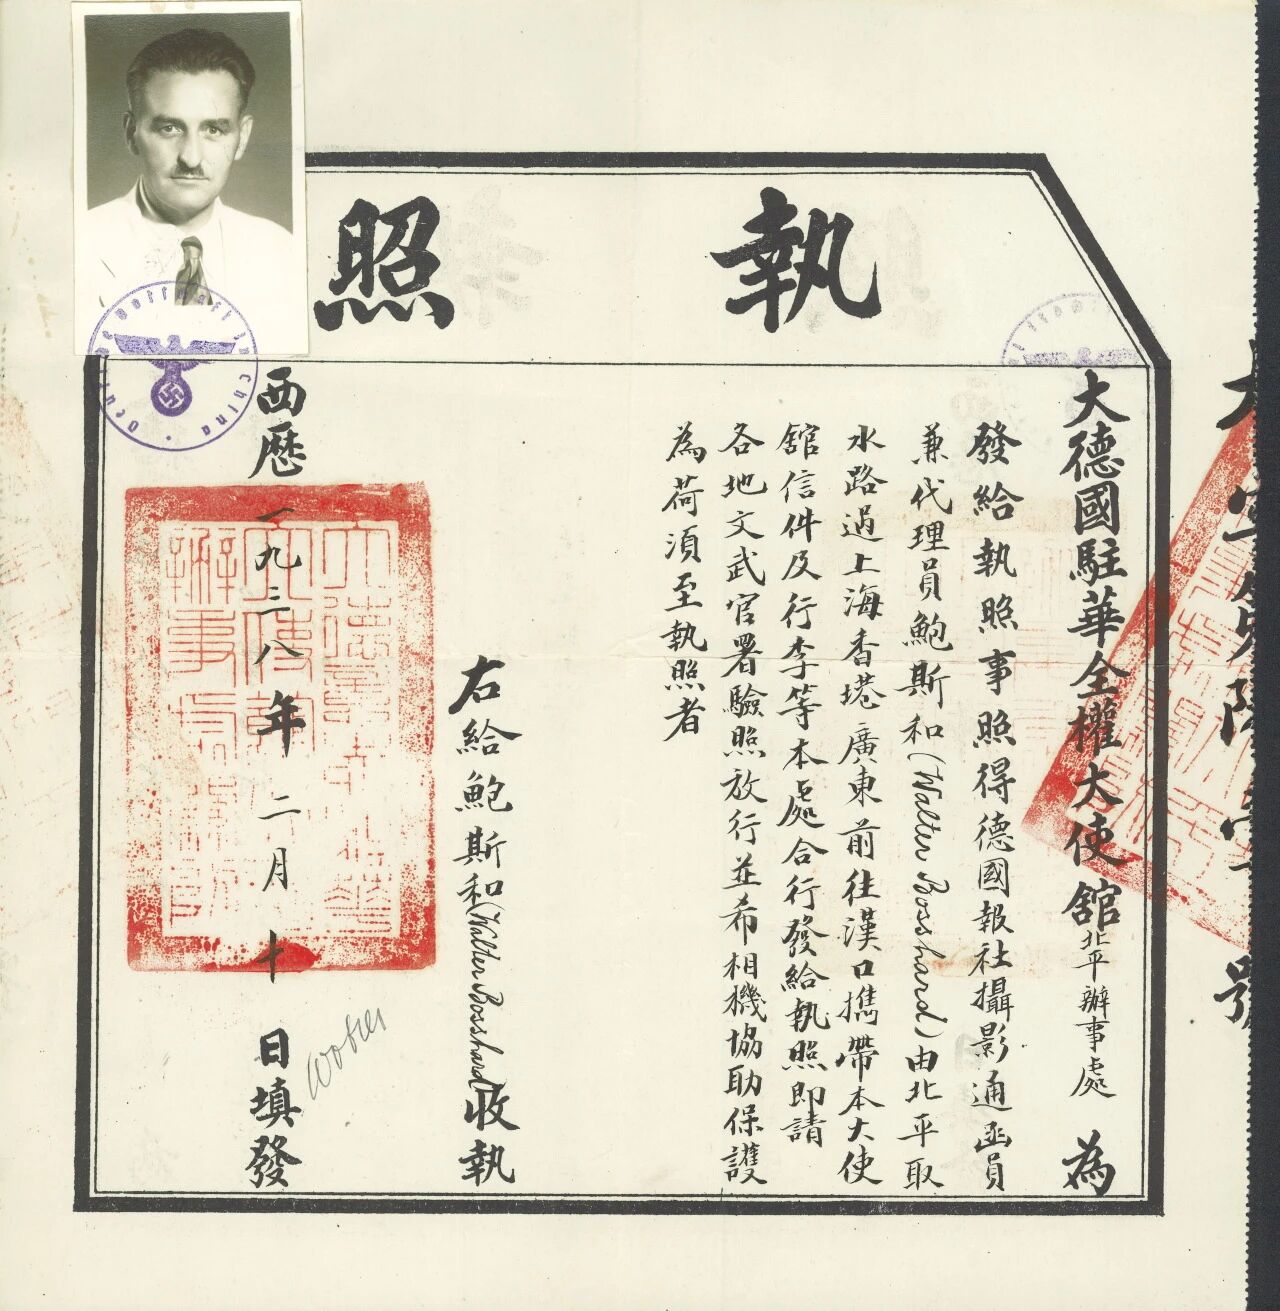 執照
大德國駐華全權大使舘北平辦事處 為
發給執照事照得德國報社攝影通函員
兼代理員鮑斯和(Walter Bosshard)由北平取
水路過上海香港廣東前往漢口攜帶本大使
舘信件及行李等本處合行發給執照即請
各地文武官署驗照放行並希相機協助保護
為荷須至執照者
右給鮑斯和(Walter Bosshard)收執
西歷一九三八年二月十日填發
Deutsche Botschaft in China
號